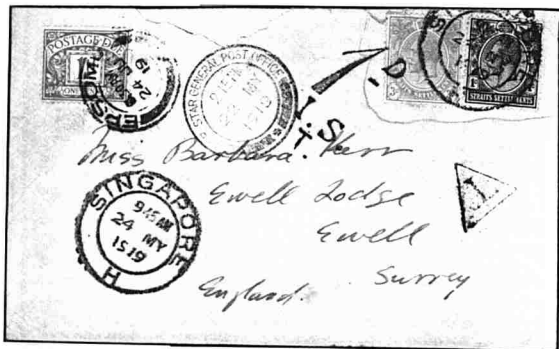 POSTAGE DUE
1
EPSOM
24 JY
19
ALOR STAR GENERAL POST OFFICE
24 MY
1919
I.S.
D.
STRAITS SETTLEMENTS
Miss Barbara Kerr
Ewell Lodge
Ewell
Surrey
England.
SINGAPORE
9.45 AM
24 MY
1919
H
1